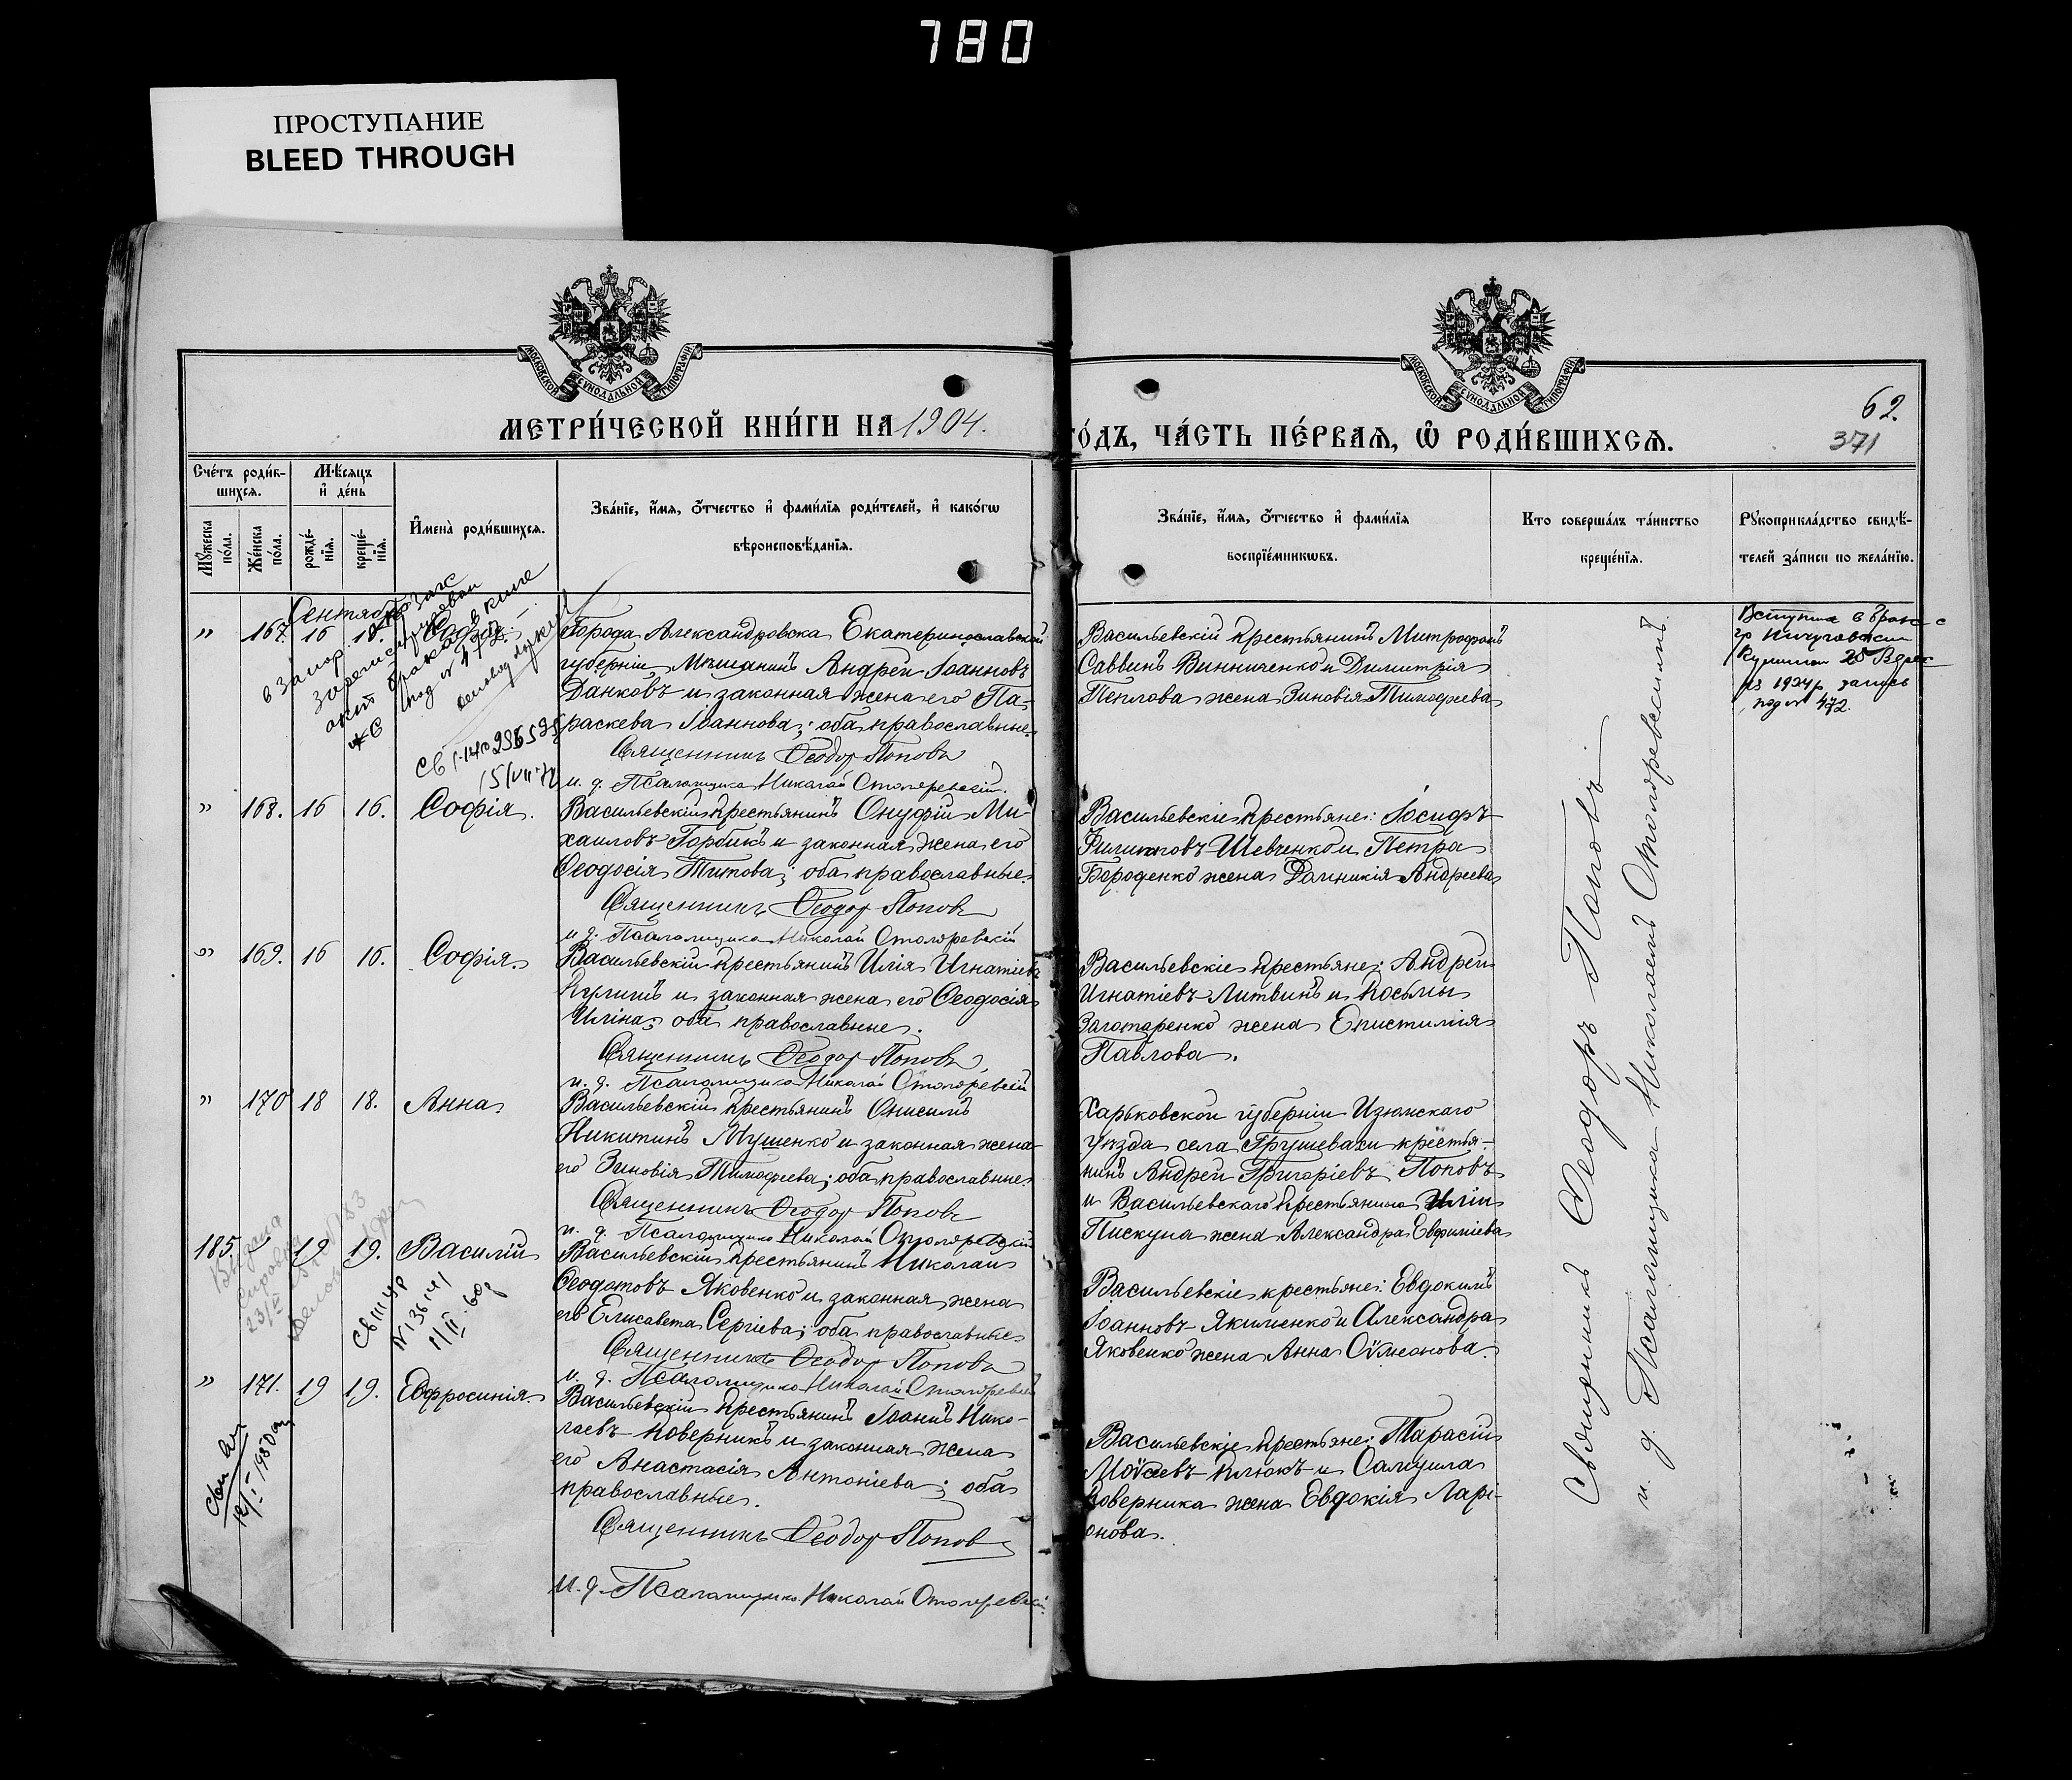 780
ПРОСТУПАНИЕ
BLEED THROUGH
МОСКОВСКОЙ СѴНОДАЛЬНОЙ ТИПОГРАФІИ
МОСКОВСКОЙ СѴНОДАЛЬНОЙ ТИПОГРАФІИ
МЕТРИ́ЧЕСКОЙ КНИ́ГИ НА 1904.
ГО́ДЪ, ЧА́СТЬ ПЕ́РВАѦ, Ѽ РОДИ́ВШИХСѦ.
62.
371
Сче́тъ роди́в-
шихсѧ.
Мѣ́сяцъ
и҆ де́нь
Мꙋ́жеска
по́ла.
Же́нска
по́ла.
рожде́-
нїѧ.
креще́-
нїѧ.
И҆мена̀ роди́вшихсѧ.
Зва́нїе, и҆́мѧ, ѻ҆́тчество и҆ фами́лїѧ роди́телей, и҆ како́гѡ
вѣроисповѣ́данїѧ.
Зва́нїе, и҆́мѧ, ѻ҆́тчество и҆ фами́лїѧ
воспрїе́мникѡвъ.
Кто соверша́лъ та́инство
креще́нїѧ.
Рꙋкоприкла́дство свидѣ́-
телей за́писи по жела́нїю.
Сентябр
" 167. 16 18. София.
Города Александровска Екатеринославской
губерніи мѣщанинъ Андрей Іоанновъ
Данковъ и законная жена его Па-
раскева Іоаннова; оба православные.
Священникъ Ѳеодоръ Поповъ
и. д. Псаломщика Николай Столяревскій.
Васильевскій крестьянинъ Митрофанъ
Саввинъ Винниченко и Димитрія
Теплова жена Зиновія Тимоѳеева
Вступила в брак с
гр
25
1924р запись
под № 472.
" 168. 16 16. Софія.
Васильевскій крестьянинъ Онуфрій Ми-
хаиловъ Горбикъ и законная жена его
Ѳеодосія Титова; оба православные.
Священникъ Ѳеодоръ Поповъ
и. д. Псаломщика Николай Столяревскій
Васильевскіе крестьяне: Іосифъ
Филипповъ Шевченко и Петра
Бороденко жена Домникія Андреева
" 169. 16 16. Софія.
Васильевскій крестьянинъ Илія Игнатіевъ
и законная жена его Ѳеодосія
Иліина; оба православные.
Священникъ Ѳеодоръ Поповъ
и. д. Псаломщика Николай Столяревскій
Васильевскіе крестьяне: Андрей
Игнатіевъ Литвинъ и Косьмы
жена Епистимія
Павлова.
" 170 18 18. Анна
Васильевскій крестьянинъ Онисимъ
Никитинъ Мушенко и законная жена
его Зиновія Тимоѳеева; оба православные.
Священникъ Ѳеодоръ Поповъ
и. д. Псаломщика Николай Столяревскій
Харьковской губерніи Изюмскаго
уѣзда села Грушевахи крестья-
нинъ Андрей Григоріевъ Поповъ
и Васильевскаго крестьянина Иліи
Пискуна жена Александра Евфиміева
185. " 19 19. Василій
Васильевскій крестьянинъ Николай
Ѳеодотовъ Яковенко и законная жена
его Елисавета Сергіева; оба православные
Священникъ Ѳеодоръ Поповъ
и. д. Псаломщика Николай Столяревскій
Васильевскіе крестьяне: Евдокимъ
Іоанновъ Якименко и Александра
Яковенко жена Анна Сѵмеонова.
" 171. 19 19. Евфросинія.
Васильевскій крестьянинъ Іоаннъ Нико-
лаевъ Коверникъ и законная жена
его Анастасія Антоніева; оба
православные.
Священникъ Ѳеодоръ Поповъ
И. д. Псаломщика Николай Столяревскій.
Васильевскіе крестьяне: Тарасій
Моѵсеевъ Клюкъ и Самуила
Коверника жена Евдокія Ларі-
онова.
Священникъ Ѳеодоръ Поповъ
и. д. Псаломщика Николай Столяревскій